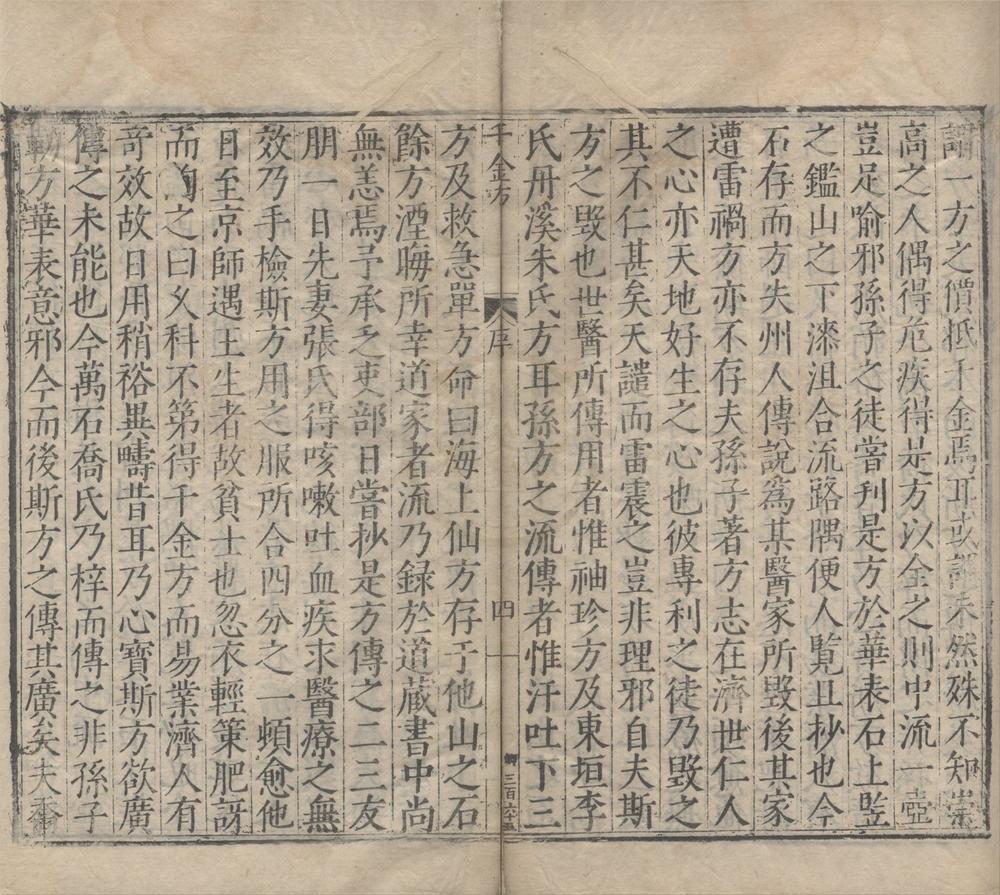 謂一方之價抵千金焉耳或謂未然殊不知崇
高之人偶得危疾得是方以全之則中流一壺
豈足喻邪孫子之徒嘗刊是方於華表石上監
之鑑山之下漆沮合流路隅便人覽且抄也今
石存而方失州人傳說為某醫家所毀後其家
遭雷禍方亦不存夫孫子著方志在濟世仁人
之心亦天地好生之心也彼專利之徒乃毀之
其不仁甚矣天譴而雷震之豈非理邪自夫斯
方之毀也世醫所傳用者惟袖珍方及東垣李
氏丹溪朱氏方耳孫方之流傳者惟汗吐下三
千金方 序 四 三百六十五
方及救急單方命曰海上仙方存于他山之石
餘方湮晦所幸道家者流乃録於道藏書中尚
無恙焉予承乏吏部日嘗抄是方傳之二三友
朋一日先妻張氏得咳嗽吐血疾求醫療之無
效乃手檢斯方用之服所合四分之一頓愈他
日至京師遇王生者故貧士也忽衣輕策肥訝
而詢之曰乆科不第得千金方而易業濟人有
奇效故日用稍裕異疇昔耳乃心寶斯方欲廣
傳之未能也今萬石喬氏乃梓而傳之非孫子
勒方華表意邪今而後斯方之傳其廣矣夫乔